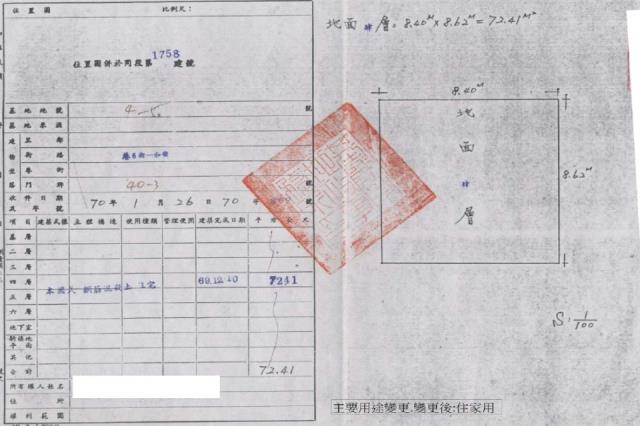 位置圖 比例尺：
位置圖併於同段第1758建號
基地地號 4-5 號
基地來源
建 里鄰
物 街路
坐 巷街
落 門牌 40-3 號
收件日期及字號 70年1月26日70年
項目 建築式樣 主體構造 使用種類 管理使用 建築完成日期 平方公尺
基層
二層
三層
四層 本國式 鋼筋混凝土 住宅 69.12.10 7241
五層
六層
地下室
騎樓地平面
其他
合計 72.41
所有權人姓名
住所
權利範圍
地面肆層=8.40M×8.62M=72.41M²
8.40M
地面肆層
8.62M
S:1/100
主要用途變更.變更後:住家用